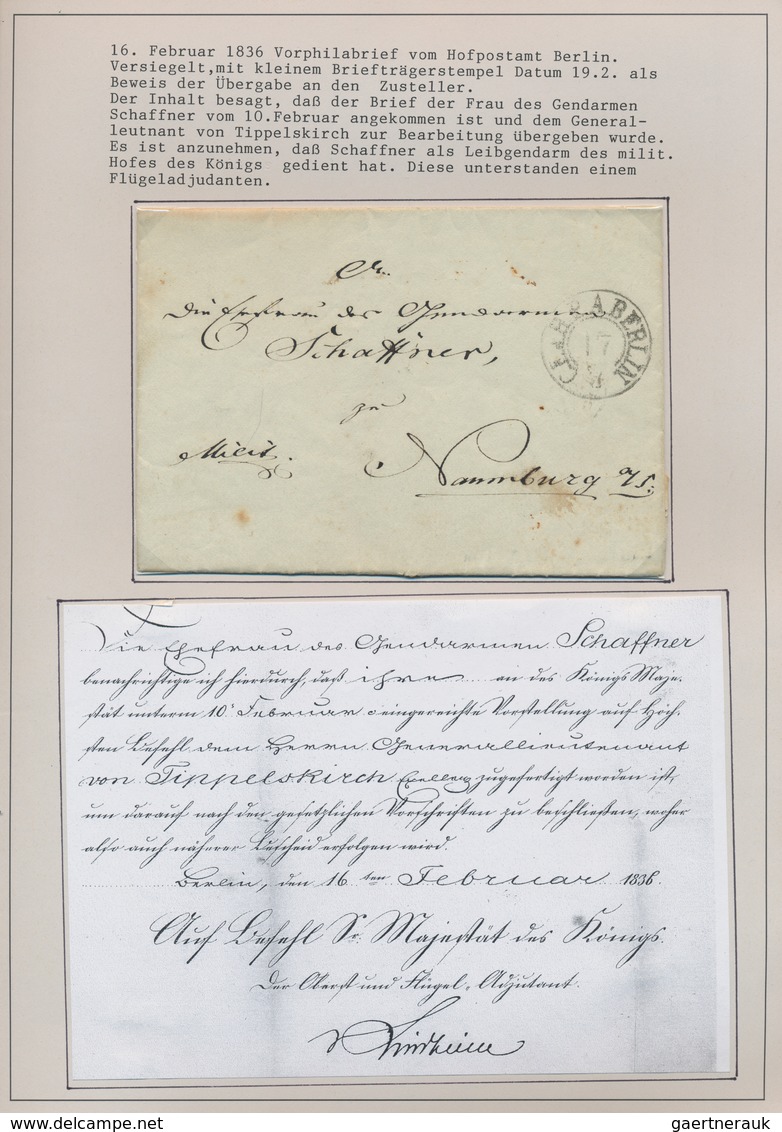 16. Februar 1836 Vorphilabrief vom Hofpostamt Berlin.
Versiegelt,mit kleinem Briefträgerstempel Datum 19.2. als
Beweis der Übergabe an den Zusteller.
Der Inhalt besagt, daß der Brief der Frau des Gendarmen
Schaffner vom 10.Februar angekommen ist und dem General-
leutnant von Tippelskirch zur Bearbeitung übergeben wurde.
Es ist anzunehmen, daß Schaffner als Leibgendarm des milit.
Hofes des Königs gedient hat. Diese unterstanden einem
Flügeladjudanten.
An
die Ehefrau des Gendarmen
Schaffner,
zu
Milit.
Naumburg a/S.
BERLIN
17
Die Ehefrau des Gendarmen Schaffner
benachrichtige ich hierdurch, daß ihre an des Königs Maje-
stät unterm 10t Februar c eingereichte Vorstellung auf Höch-
sten Befehl dem Herrn Generallieutenant
von Tippelskirch Excellenz zugefertigt worden ist,
um darauf nach den gesetzlichen Vorschriften zu beschließen, woher
also auch näherer Bescheid erfolgen wird.
Berlin, den 16 ten Februar 1836.
Auf Befehl Sr. Majestät des Königs.
Der Oberst und Flügel-Adjutant.
v Lindheim
gaertnerauk